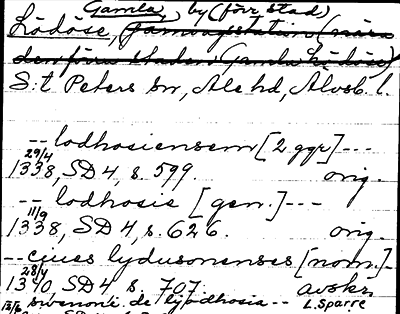 Gamla, by (förr stad)
Lödöse, järnvägsstation (nära
den förra staden Gamla Lödöse)
S:t Peters sn, Ale hd, Älvsb. l.
-- lodhosiensem [2 ggr] ---
29/4
1338, SD 4, s. 599. orig.
-- lodhosie [gen.] ---
11/9
1338, SD 4, s. 626. orig.
-- ciues lydusonenses [nom.] -
28/4
1340, SD 4 s. 707. avskr.
swenoni de lypdhosia -- L. Sparre